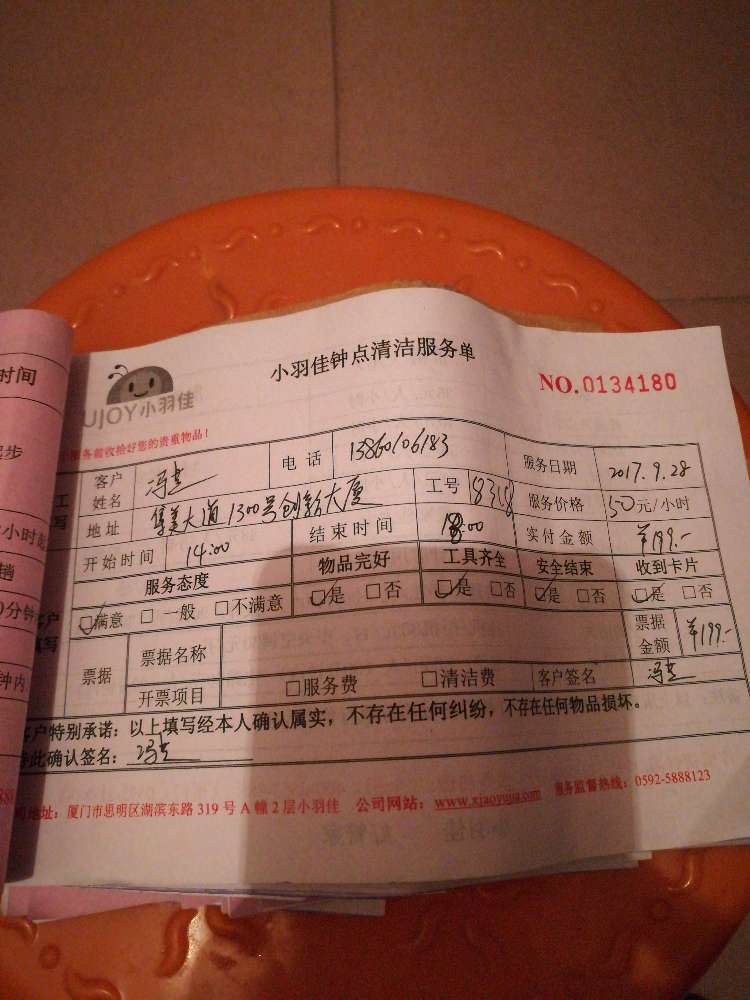 时间
小羽佳钟点清洁服务单
UJOY小羽佳
NO.0134180
服务前收拾好您的贵重物品!
客户姓名 冯 电话 13860106183 服务日期 2017.9.28
地址 集美大道1300号创新大厦 工号 服务价格 50元/小时
开始时间 14:00 结束时间 18:00 实付金额 ¥199.-
服务态度 物品完好 工具齐全 安全结束 收到卡片
☑满意 □一般 □不满意 ☑是 □否 ☑是 □否 ☑是 □否 ☑是 □否
票据 票据名称 票据金额 ¥199.-
开票项目 □服务费 □清洁费 客户签名 冯
客户特别承诺:以上填写经本人确认属实,不存在任何纠纷,不存在任何物品损坏。
此确认签名: 冯
地址:厦门市思明区湖滨东路319号A幢2层小羽佳 公司网站:www.xiaoyujia.com 服务监督热线:0592-5888123